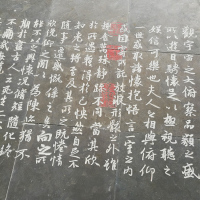 觀宇宙之大俯察品類之盛
所以遊目騁懷足以極視聽之
娛信可樂也夫人之相與俯仰
一世或取諸懷抱悟言一室之內
或因寄所託放浪形骸之外雖
趣舍萬殊靜躁不同當其欣
於所遇暫得於己怏然自足不
知老之將至及其所之既惓情
隨事遷感慨係之矣向之所
欣俛仰之間以為陳迹猶不
能不以之興懷況脩短隨化終